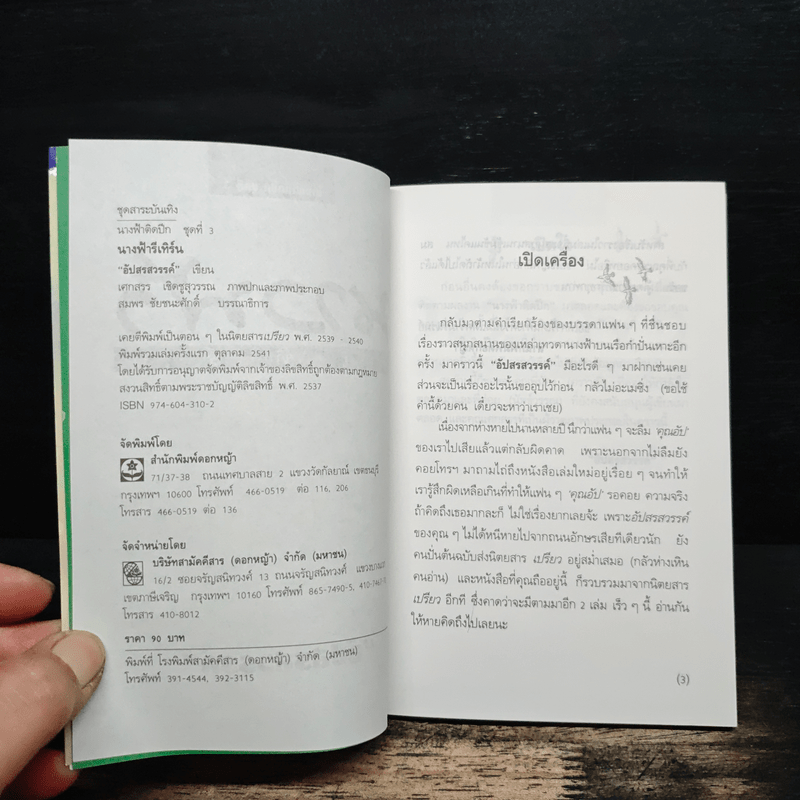 ชุดสาระบันเทิง
นางฟ้าติดปีก ชุดที่ 3
นางฟ้ารีเทิร์น
"อัปสรสวรรค์" เขียน
เศกสรร เชิดชูสุวรรณ ภาพปกและภาพประกอบ
สมพร ชัยชนะศักดิ์ บรรณาธิการ
เคยตีพิมพ์เป็นตอน ๆ ในนิตยสารเปรียว พ.ศ. 2539 - 2540
พิมพ์รวมเล่มครั้งแรก ตุลาคม 2541
โดยได้รับการอนุญาตจัดพิมพ์จากเจ้าของลิขสิทธิ์ถูกต้องตามกฎหมาย
สงวนสิทธิ์ตามพระราชบัญญัติลิขสิทธิ์ พ.ศ. 2537
ISBN 974-604-310-2
จัดพิมพ์โดย
สำนักพิมพ์ดอกหญ้า
71/37-38 ถนนเทศบาลสาย 2 แขวงวัดกัลยาณ์ เขตธนบุรี
กรุงเทพฯ 10600 โทรศัพท์ 466-0519 ต่อ 116, 206
โทรสาร 466-0519 ต่อ 136
จัดจำหน่ายโดย
บริษัทสามัคคีสาร (ดอกหญ้า) จำกัด (มหาชน)
16/2 ซอยจรัญสนิทวงศ์ 13 ถนนจรัญสนิทวงศ์
เขตภาษีเจริญ กรุงเทพฯ 10160 โทรศัพท์ 865-7490-5,
โทรสาร 410-8012
ราคา 90 บาท
พิมพ์ที่ โรงพิมพ์สามัคคีสาร (ดอกหญ้า) จำกัด (มหาชน)
โทรศัพท์ 391-4544, 392-3115
เปิดเครื่อง
กลับมาตามคำเรียกร้องของบรรดาแฟน ๆ ที่ชื่นชอบ
เรื่องราวสนุกสนานของเหล่าเทวดานางฟ้าบนเรือกำปั่นเหาะอีก
ครั้ง มาคราวนี้ "อัปสรสวรรค์" มีอะไรดี ๆ มาฝากเช่นเคย
ส่วนจะเป็นเรื่องอะไรนั้นขออุบไว้ก่อน กลัวไม่อะเมซิ่ง (ขอใช้
คำนี้ด้วยคน เดี๋ยวจะหาว่าเราเชย)
เนื่องจากห่างหายไปนานหลายปี นึกว่าแฟน ๆ จะลืม 'คุณอัป'
ของเราไปเสียแล้วแต่กลับผิดคาด เพราะนอกจากไม่ลืมยัง
คอยโทรฯ มาถามไถ่ถึงหนังสือเล่มใหม่อยู่เรื่อย ๆ จนทำให้
เรารู้สึกผิดเหลือเกินที่ทำให้แฟน ๆ 'คุณอัป' รอคอย ความจริง
ถ้าคิดถึงเธอมากละก็ ไม่ใช่เรื่องยากเลยจ้ะ เพราะอัปสรสวรรค์
ของคุณ ๆ ไม่ได้หนีหายไปจากถนนอักษรเสียทีเดียวนัก ยัง
คงปั่นต้นฉบับส่งนิตยสาร เปรียว อยู่สม่ำเสมอ (กลัวห่างเหิน
คนอ่าน) และหนังสือที่คุณถืออยู่นี้ ก็รวบรวมมาจากนิตยสาร
เปรียว อีกที ซึ่งคาดว่าจะมีตามมาอีก 2 เล่ม เร็ว ๆ นี้ อ่านกัน
ให้หายคิดถึงไปเลยนะ
(3)